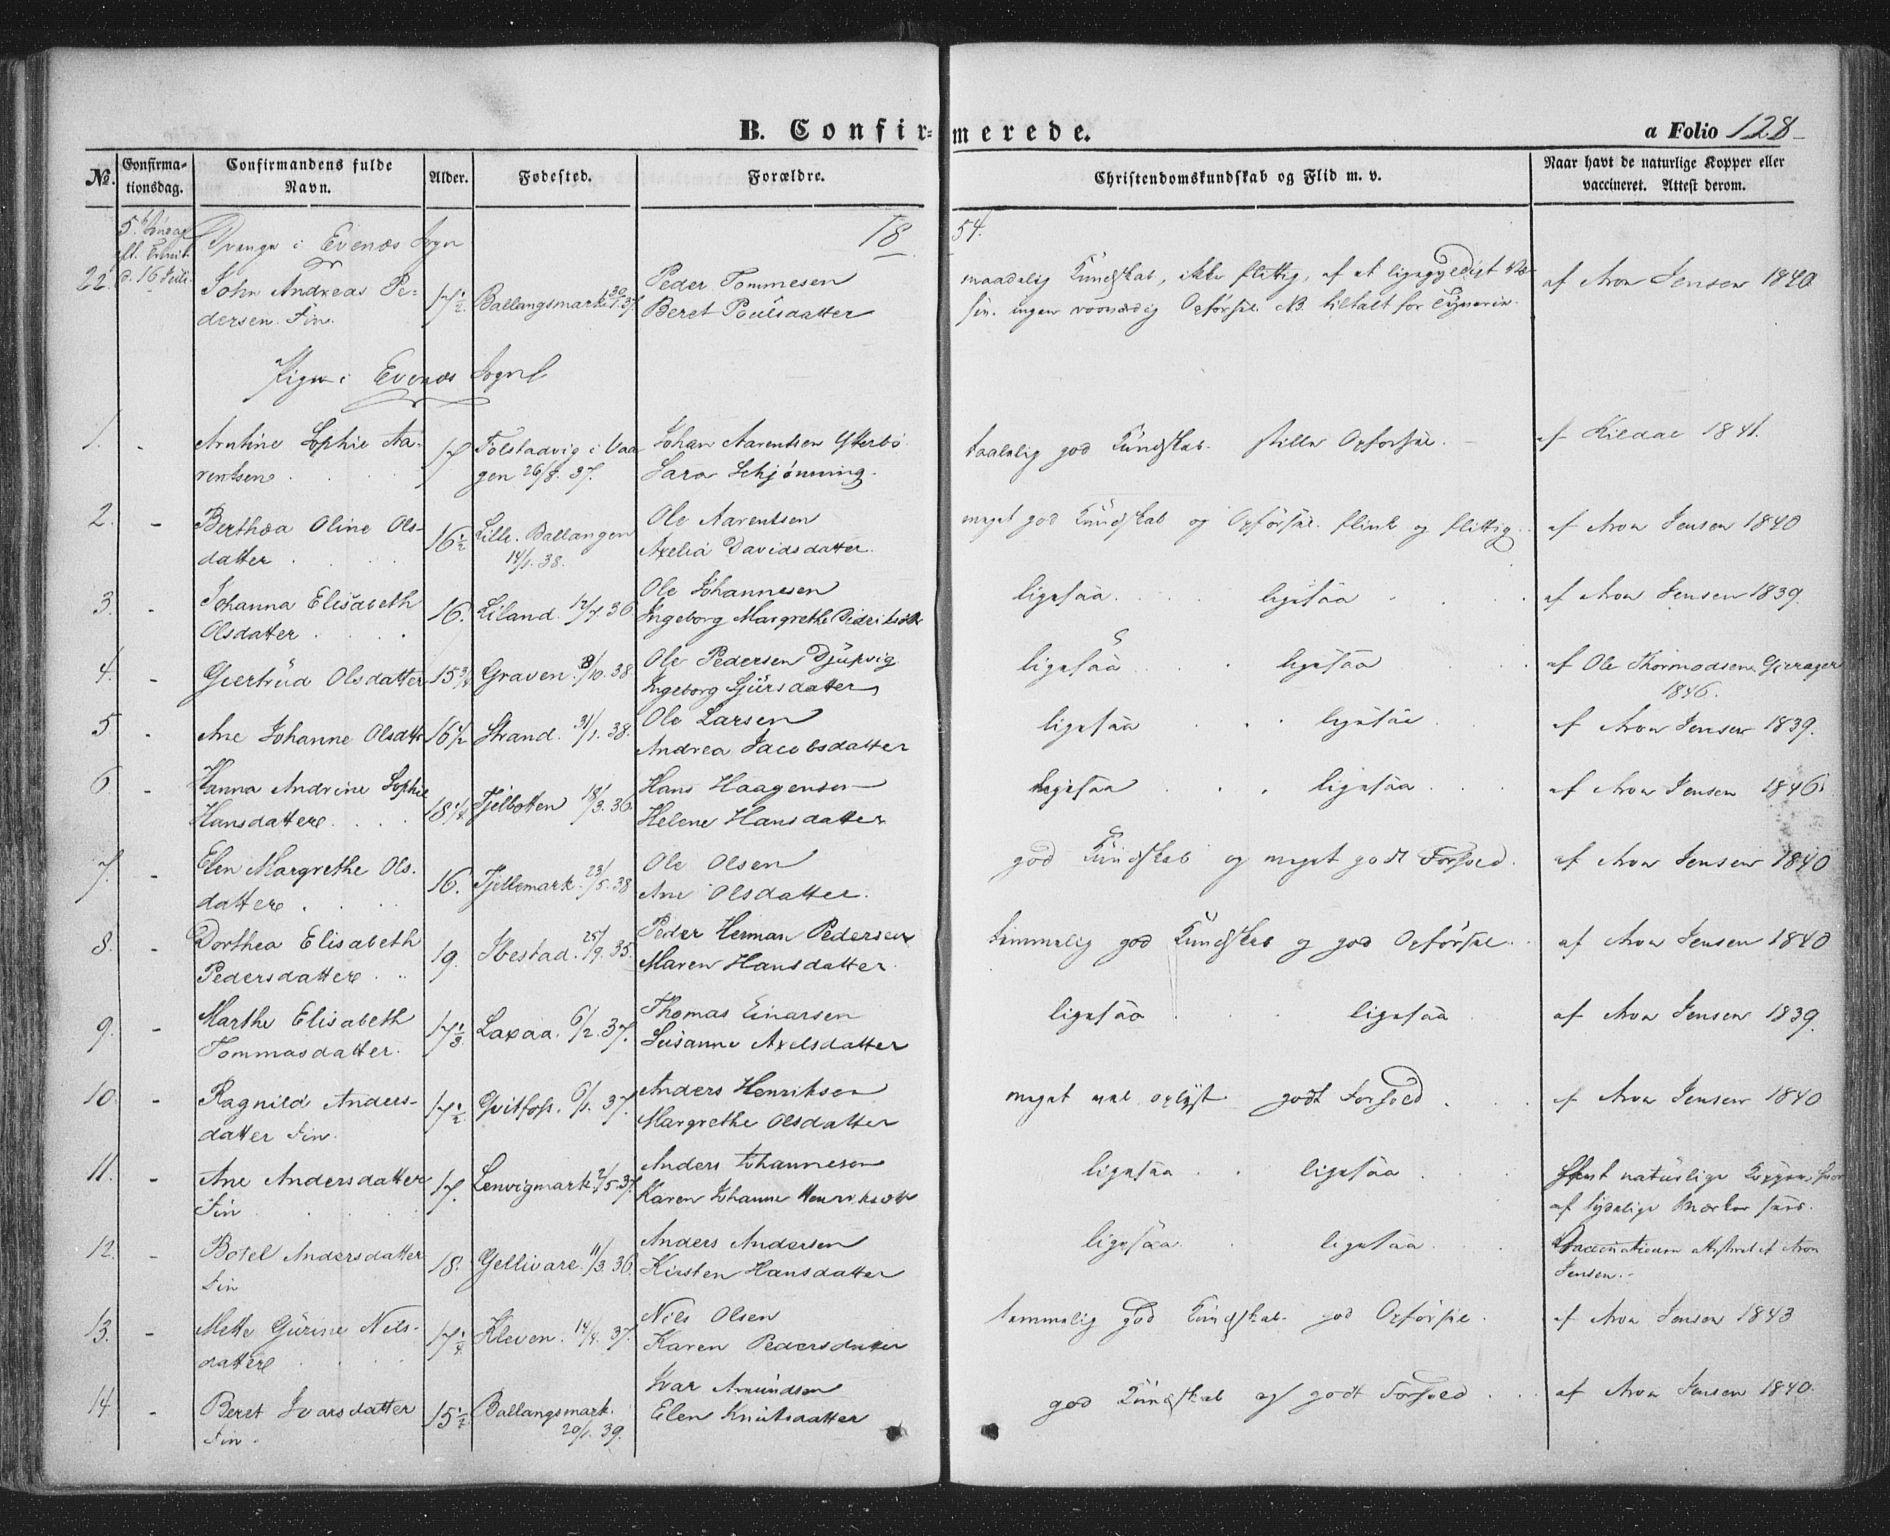 B. Confirmerede.
a Folio 128
No.
Confirmationsdag.
Confirmandens fulde Navn.
Alder.
Fødested.
Forældre.
Christendomskundskab og Flid m. v.
Naar havt de naturlige Kopper eller vaccineret. Attest derom.
1854.
Drenge i Evenæs Sogn
22. John Andreas Pe- 17½ Ballangsmark 30/1 37. Peder Tommesen maadelig Kundskab, ikke flittig, af et ligegyldigt af Aron Jensen 1840
dersen. Fin. Beret Poulsdatter
Piger i Evenæs Sogn
1. - Arntine Sophie Aa- 17 Tolstadvig i Vaa Johan Aarentsen taalelig god Kundskab. stille Opførsel. af Kildal 1841.
rentsen gen 26/8. 37. Sara Schjønning.
2. - Berthea Oline Ols- 16½ Lille Ballangen Ole Aarentsen meget god Kundskab og Opførsel. flink og flittig. af Aron Jensen 1840
datter 14/1. 38. Axelia Davidsdatter.
3. - Johanna Elisabeth 16. Liland. 36 Ole Johannesen ligesaa ligesaa af Aron Jensen 1839.
Olsdatter Ingeborg Margrethe
4. - Giertrüd Olsdatter 15¾ Graven 8/10. 38 Ole Pedersen Djupvig ligesaa ligesaa af Ole Thormodsen Gjerager
Ingeborg Sjursdatter 1846.
5 - Ane Johanne Olsdtr 16½ Strand. 31/1. 38. Ole Larsen ligesaa ligesaa af Aron Jensen 1839.
Andrea Jacobsdatter
6 - Hanna Andrine Sophie 18¼ Tjelbotten 18/3. 36 Hans Haagensen ligesaa ligesaa af Aron Jensen 1846
Hansdatter Helene Hansdatter
7. - Elen Margrethe Ols- 16. Tjellemark. 23/5. 38 Ole Olsen god Kundskab og meget godt Forhold. af Aron Jensen 1840
datter Ane Olsdatter.
8. - Dorthea Elisabeth 19. Ibestad. 25/9. 35. Peder Herman Pedersen temmelig god Kundskab og god Opførsel. af Aron Jensen 1840
Pedersdatter Maren Hansdatter
9. - Marthe Elisabeth 17⅓ Laxaa. 6/2. 37. Thomas Einarsen ligesaa ligesaa af Aron Jensen 1839.
Tommasdatter. Susanne Axelsdatter
10. - Ragnild Anders- 17½ Qvitfoss. 6/1. 37. Anders Henriksen meget vel oplyst godt Forhold. af Aron Jensen 1840
datter Fin. Margrethe Olsdatter
11. - Ane Andersdatter 17. Lenvigmark. 2/5. 37. Anders Johannesen ligesaa ligesaa havt naturlige Kopper, hvor
Fin Karen Johanne af tydelige Mærker sees.
12. - Botel Andersdatter 18. Gellivare. 11/3. 36. Anders Andersen ligesaa ligesaa Vaccinationen attesteret af Aron
Fin Kirsten Hansdatter Jensen.
13. - Mette Gürine Nils- 17¼ Kleven. 14/4. 37. Nils Olsen temmelig god Kundskab. god Opførsel. af Aron Jensen 1843
datter Karen Pedersdatter
14 - Beret Ivarsdatter 15½ Ballangsmark. Ivar Amundsen god Kundskab og godt Forhold af Aron Jensen 1840.
Fin. 20/1. 39. Elen Knutsdatter